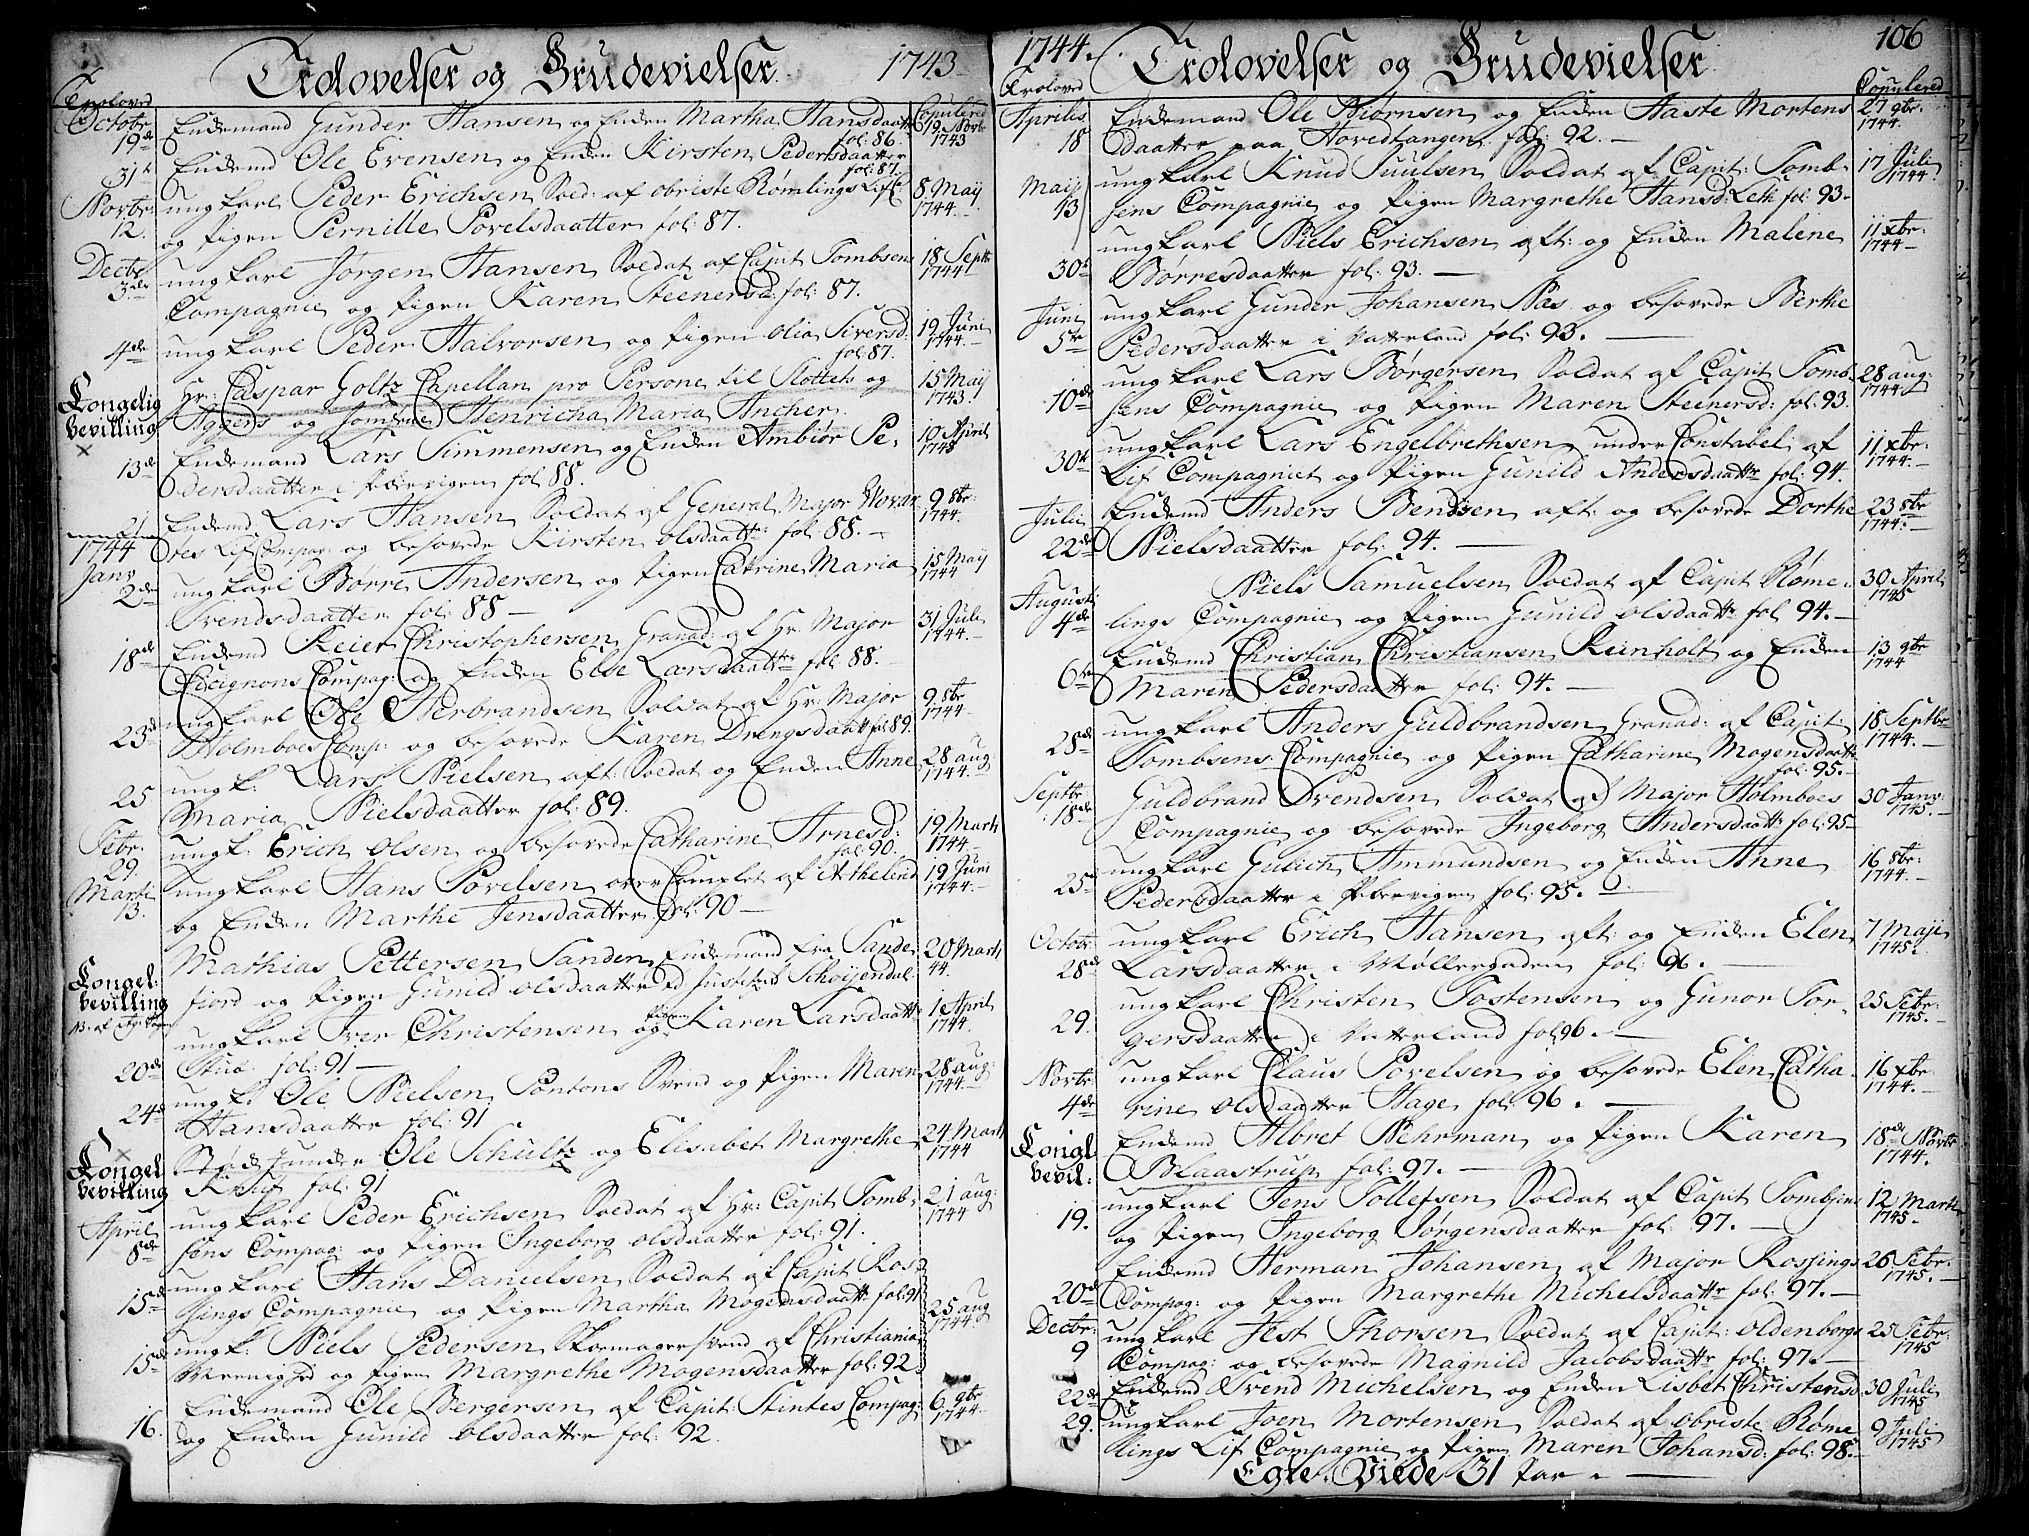 Trolovelser og Brudevielser 1743
Troloved
Copulered
Octobr 19de Enckemand Gunder Hansen og Encken Martha Hansdaatter fol: 86. 19 Novbr 1743
31te Enckemd Ole Evensen og Encken Kirsten Pedersdaatter fol: 87.
Novbr: 12. ungkarl Peder Erichsen Sold: af obriste Rømlings Lif C 8 Maij 1744.
og Pigen Pernille Povelsdaatter fol: 87.
Decbr 3de ungkarl Jørgen Hansen Soldat af Capit Tombsens 18 Septbr 1744
Compagnie og Pigen Karen Steenersd: fol: 87.
4de ungkarl Peder Halvorsen og Pigen Olia Siversd: fol: 87. 19 Juni 1744.
Congelig Bevilling Hr: Caspar Goltz Capellan pro Persone til Slottets og 15 Maij 1743.
Aggers og Jomfrue Henricha Maria Ancher.
13de Enckemand Lars Simmensen og Encken Ambiør Pe- 10 April 1745
dersdaatter i Pibervigen fol 88.
21 Enckemd: Lars Hansen Soldat af General Major 9 8br: 1744.
tes Lif Compag: og besovede Kirsten Olsdaatter fol: 88.
1744 Janv 2de ungkarl Børre Andersen og Pigen Catrine Maria 15 Maij 1744
Svendsdaatter fol: 88
18de Enckemd Reier Christophersen Granad: af Hr: Major 31 Juli 1744.
Cicignons Compag: og Encken Else Larsdaatter fol: 88.
23de ungkarl Ole Asterbrandsen Soldat af Hr: Major 9 8br 1744
Holmboes Comp: og besovede Karen Drengsdaatt fol 89.
25 ungk: Lars Nielsen aft: Soldat og Encken Anne 28 aug: 1744.
Maria Nielsdaatter fol: 89.
Febr: 29. ungk: Erich Olsen og besovede Catharine Arnesd: fol: 90. 19 Marti 1744
Marti 13. ungkarl Hans Povelsen over Complet af Arthelerid 19 Juni 1744.
og Encken Marthe Jensdaatter fol: 90
Congel: bevilling Mathias Pettersen Sanden Enckemand fra Sande- 20 Marti 44.
fiord og Pigen Gunild Olsdaatter
20de ungkarl Iver Christensen og Pigen Karen Larsdaatter 1 April 1744.
Stue fol: 91
24de ungk: Ole Nielsen Pontons Svend og Pigen Maren 28 aug: 1744.
Hansdaatter fol: 91
Congel bevilling Ole Schultz og Elisabet Margrethe 24 Marti 1744
Knuf fol: 91
April 8de ungkarl Peder Erichsen Soldat af Hr: Capit Tomb- 21 aug: 1744
sens Compag: og Pigen Ingeborg Olsdaatter fol: 91.
15de ungkarl Hans Danielsen Soldat af Capit Ros-
sings Compagnie og Pigen Martha Mogensdaatt: fol: 91 25 aug 1744
15de ungk: Niels Pedersen Skomagersvend af Christiania
og Pigen Margrethe Mogensdaatter fol: 92.
16. Enckemand Ole Bergersen af Capit: Stintes Compag: 6 9br 1744.
og Encken Gunild Olsdaatter fol: 92.
1744. Trolovelser og Brudevielser 106
Troloved
Copulered
Aprilis 18 Enckemand Ole Biørnsen og Encken Aaste Mortens 27 9br: 1744.
daatter paa Hovedtangen fol: 92.
Maij 13 ungkarl Knud Juulsen Soldat af Capit: Tomb- 17 Juli 1744
sens Compagnie og Pigen Margrethe Hansd: Lek fol: 93.
30te ungkarl Niels Erichsen aft: og Encken Malene 11 xbr: 1744
Børresdaatter fol: 93.
Juni 5te ungkarl Gunder Johansen Næs og besovede Berthe
Pedersdaatter i Vatterland fol: 93.
10de ungkarl Lars Børgersen Soldat af Capit Tomb- 28 aug: 1744
sens Compagnie og Pigen Maren Steenersd: fol: 93.
30te ungkarl Lars Engelbrethsen under Constabel af 11 xbr: 1744.
Lif Compagniet og Pigen Gunild Andersdaatter fol: 94.
Julii 22de Enckemd Anders Bendsen aft: og besovede Dorthe 23 8br 1744.
Nielsdaatter fol: 94.
Augusti 4de Niels Samuelsen Soldat af Capit Røme- 30 April 1745
lings Compagnie og Pigen Gunild Olsdaatter fol 94.
6te Enckemd Christian Christiansen Reinholt og Encken 13 9br 1744
Maren Pedersdaatter fol: 94.
28de ungkarl Anders Guldbrandsen Granad: af Capit: 18 Septbr 1744.
Tombsens Compagnie og Pigen Catharine Mogensdaatter fol: 95.
Septbr 18de Guldbrand Svendsen Soldat af Major Holmboes 30 Janv: 1745.
Compagnie og besovede Ingeborg Andersdaatt fol: 95
25de ungkarl Gulich Ammundsen og Encken Anne 16 8br: 1744.
Pedersdaatter i Pibervigen fol: 95.
Octobr: 28de ungkarl Erich Hansen aft: og Encken Elen 7 Maji 1745.
Larsdaatter i Møllergaden fol: 96.
29. ungkarl Christen Tostensen og Gunor Tor- 25 Febr: 1745.
gersdaatter i Vatterland fol 96.
Novbr 4de ungkarl Claus Povelsen og besovede Elen Catha- 16 xbr: 1744.
rine Olsdaatter Hage fol: 96.
Congl bevil: Enckemd Albret Nehrman og Pigen Karen 18de Novbr 1744.
Blaastrup fol: 97.
19. ungkarl Jens Tollefsen Soldat af Capit Tombsens 12 Marti 1745.
og Pigen Ingeborg Jørgensdaatter fol: 97.
20de Enckemd Herman Johansen af Major Rossings 26 Febr: 1745.
Compag: og Pigen Margrethe Michelsdaatter fol: 97.
Decbr: 9 ungkarl Jest Thorsen Soldat af Capit: Oldenborgs 25 Febr: 1745
Compag: og besovede Magnild Jacobsdaatter fol: 97.
22de Enckemd Svend Michelsen og Encken Lisbet Christensd 30 Juli 1745
29. ungkarl Joen Mortensen Soldat af obriste Røme- 9 Juli 1745
lings Lif Compagnie og Pigen Maren Johansd: fol: 98.
Egte Viede 31 Par.